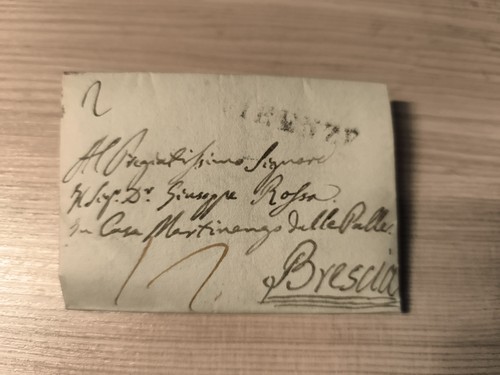 FIRENZE
Al Pregiatissimo Signore
Il Sigr. Dr. Giuseppe Rossa
In Casa Martinengo delle Palle
Brescia